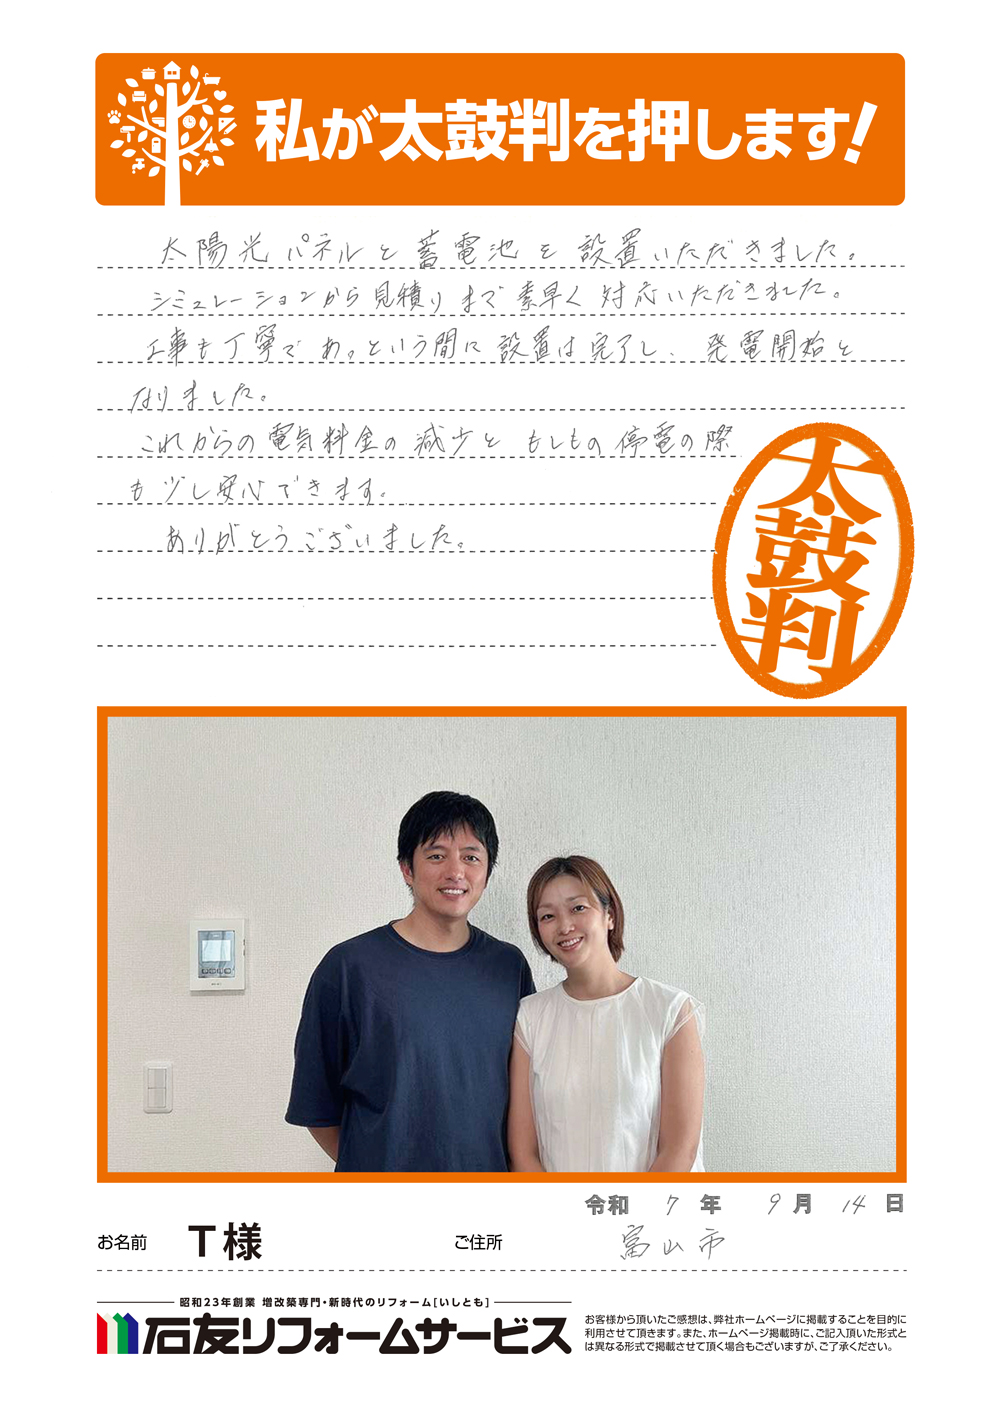 私が太鼓判を押します!
太陽光パネルと蓄電池を設置いただきました。
シミュレーションから見積りまで素早く対応いただきました。
工事も丁寧であっという間に設置は完了し、発電開始と
なりました。
これからの電気料金の減少ともしもの停電の際
も少し安心できます。
ありがとうございました。
太鼓判
令和 7 年 9 月 14 日
お名前 T様 ご住所 富山市
昭和23年創業 増改築専門・新時代のリフォーム[いしとも]
石友リフォームサービス
お客様から頂いたご感想は、弊社ホームページに掲載することを目的に
利用させて頂きます。また、ホームページ掲載時に、ご記入頂いた形式と
は異なる形式で掲載させて頂く場合もございますが、ご了承ください。